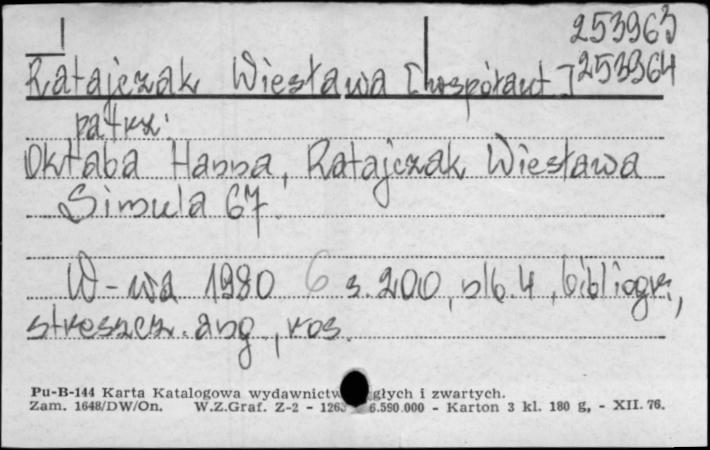 253963
Ratajczak Wiesława [współaut.] 253964
patrz:
Oktaba Hanna, Ratajczak Wiesława
Simula 67.
W-wa 1980 6 s. 200, nlb. 4, bibliogr.,
streszcz. ang., ros.
Pu-B-144 Karta Katalogowa wydawnictw głych i zwartych.
Zam. 1648/DW/On. W.Z.Graf. Z-2 - 1263 6.590.000 - Karton 3 kl. 180 g, - XII. 76.